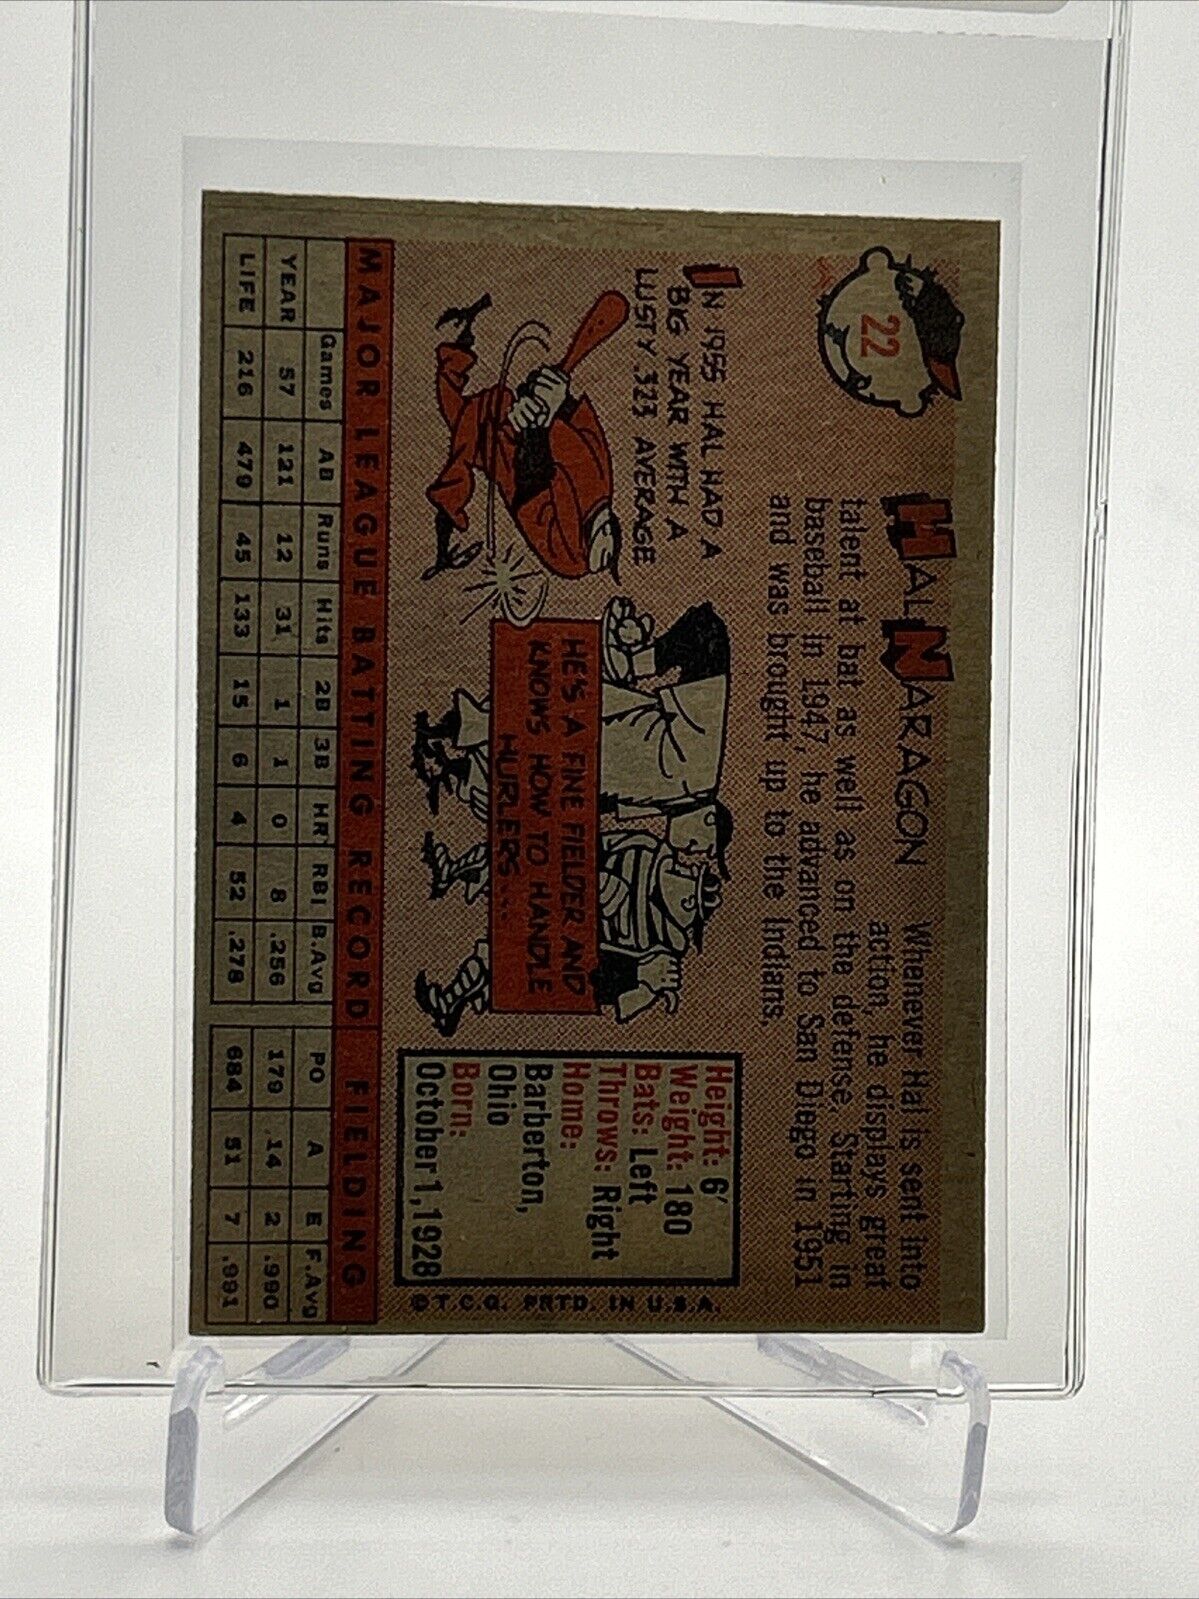 22
HAL NARAGON
Whenever Hal is sent into
action, he displays great
talent at bat as well as on the defense. Starting in
baseball in 1947, he advanced to San Diego in 1951
and was brought up to the Indians.
IN 1955 HAL HAD A
BIG YEAR WITH A
LUSTY .323 AVERAGE
HE'S A FINE FIELDER AND
KNOWS HOW TO HANDLE
HURLERS...
Height: 6'
Weight: 180
Bats: Left
Throws: Right
Home:
Barberton,
Ohio
Born:
October 1, 1928
©T.C.G. PRTD. IN U.S.A.
MAJOR LEAGUE BATTING RECORD FIELDING
Games AB Runs Hits 2B 3B HR RBI B.Avg PO A E F.Avg
YEAR 57 121 12 31 1 1 0 8 .256 179 14 2 .990
LIFE 216 479 45 133 15 6 4 52 .278 684 51 7 .991